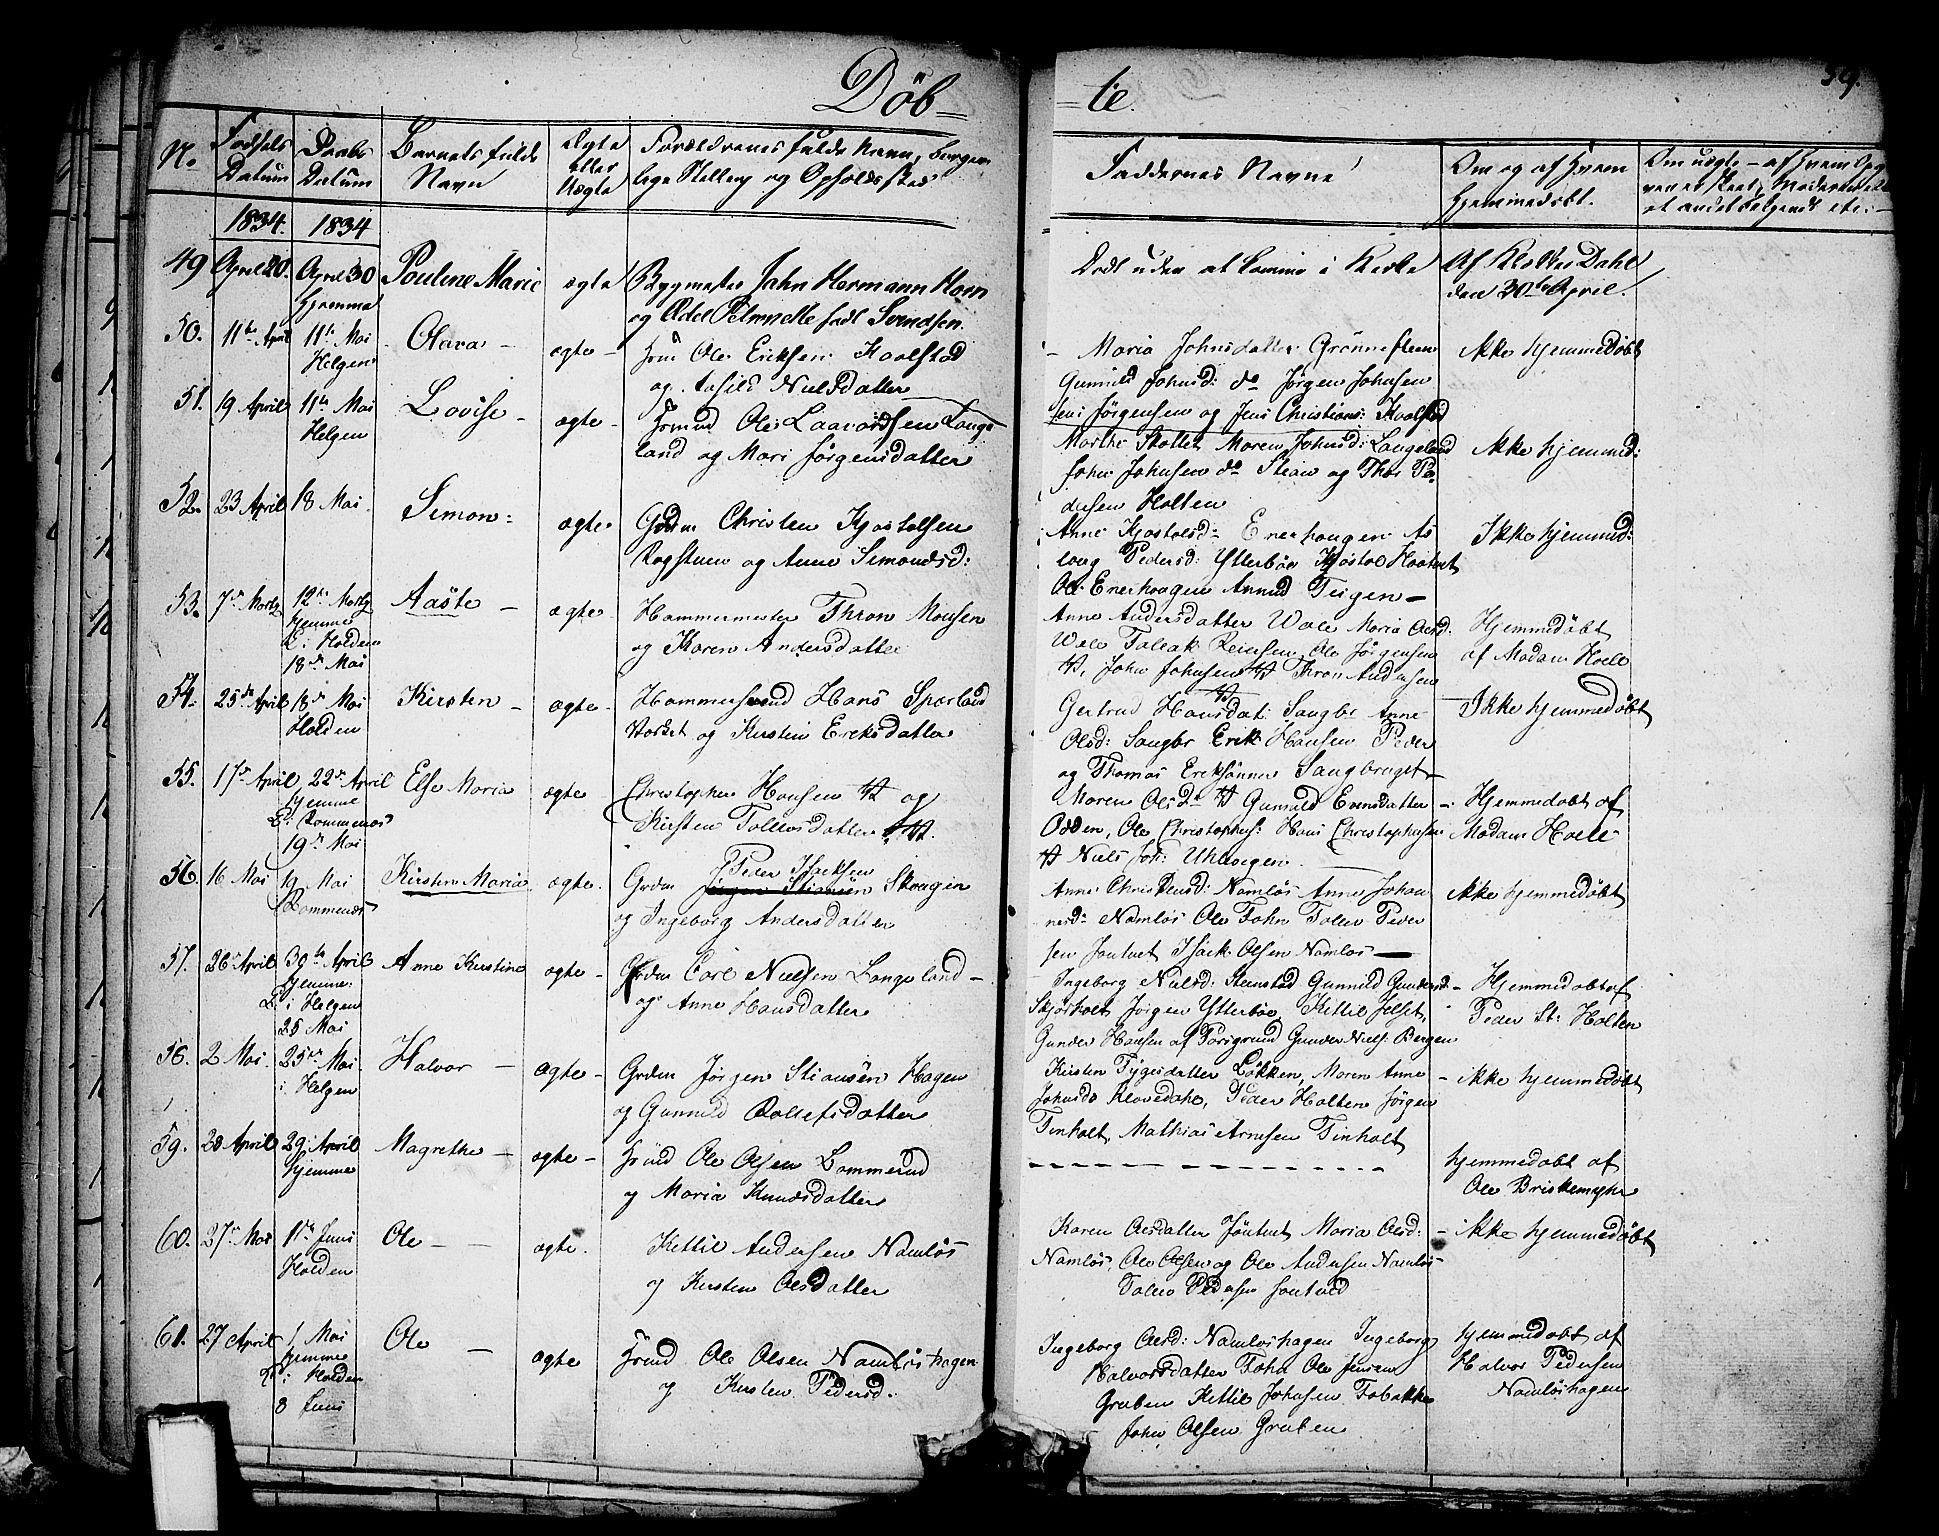 Døb-
-te.
59.
No
Fødsels Datum
Daabs Datum
Barnets fulde Navn
Ægte eller Uægte
Forældrenes fulde Navn, borgerlige Stilling og Opholdssted
Faddernes Navne
Om og af Hvem Hjemmedøbt.
1834. 1834
49 April 20. April 30 Hjemme Pouline Marie ægte Bygmester John Hermann Horn
og
født Svendsen.
Dødt uden at komme i Kirke
Af Klokker Dahl
den 30te April.
50. 11te April 11te Mai Helgen Olava - ægte - Ole Eriksen Kaalstad
og Aasild Nielsdatter
Maria Johnsdatter Grønnesteen
Gunnild Johnsd: do Jørgen Johnsen
Jens Jørgensen og Jens Christians: Kaalstad
Ikke hjemmedøbt
51. 19 April 11te Mai Helgen Lovise - ægte - Ole Laavordsen Lange
land og Mari Jørgensdatter
Marthe Skottet Maren Johnsd: Langeland
John Johnsen do Stean og Thor Pe-
dersen Holten
Ikke hjemmed:
52. 23 April 18 Mai Simon ægte Grdm Christen Kjostolsen
Rogstuen og Anne Simonsd:
Anne Kjostolsd: Enerhougen As
loug Pedersd: Ytterbøe Kjøstol
Ole Enerhougen Anund Teigen -
Ikke hjemmed:
53. 7de Marty 12te Marty Hjemme
D. i Holden
18de Mai
Aaste - ægte - Hammermester Thron Monsen
og Karen Andersdatter
Anne Andersdatter Wale Maria Olsd:
Wale Taleak Reiersen Ole Jørgensen
John Johnsen Thron Andersen
Hjemmedøbt
af Madam Hoell
54. 25de April 18de Mai Holden Kirsten - ægte - Hammersmed Hans
Værket og Kirstin Eriksdatter
Gertrud Hansdat: Saugbr Anne
Olsd: Saugbr Erik Hansen Peder
og Thomas Eriksønner Saugbruget
Ikke hjemmedøbt
55. 17de April 22de April Hjemme
D. i Rommenæs
19de Mai
Else Maria ægte Christopher Hansen og
Kirsten Tollevsdatter
Maren Olsd: Gunnild Evensdatter
Odden, Ole Christophers: Hans Christophersen
Niels Joh:
Hjemmedøbt af
Madam Hoell
56. 16 Mai 19 Mai Rommenæs Kirsten Maria ægte. Grdm Peder Isaksen
Jørgen Stiansen Skougen
og Ingeborg Andersdatter
Anne Christensd: Namløs Anne Johan
nesd: Namløs Ole John Tolev Peder
sen Jontvet Isack Olsen Namløs
Ikke hjemmedøbt
57. 26 April 30te April hjemme:
D. i Helgen
25 Mai
Anne Kirstine ægte - Grdm Carl Nielsen Langeland -
og Anne Hansdatter
Ingeborg Nielsd: Stenstad Gunnild Gundersd
Skjørholt Jørgen Ytterbøe, Kittil Jelset,
Gunder Hansen af Porsgrund Gunder Niels: Bergen
Hjemmedøbt af
Peder St: Holten
58. 2 Mai. 25de Mai
i Helgen
Halvor - ægte - Grdm Jørgen Stiansen Hagen
og Gunnild Rollefsdatter
Kirsten Tygesdatter Løkken, Maren Anne
Johnsd: Klovedahl, Peder Holten Jørgen
Tinholt, Mathias Arnesen Tinholt
- ikke hjemmedøbt
59. 28 April 29 April hjemme Magrethe - ægte - Ole Olsen Lommerud
og Maria Knudsdatter
hjemmedøbt af
Ole Briskemyhr
60. 27de Mai 1ste Juni Holden Ole - ægte. Kettil Andersen Namløs
og Kirsten Olsdatter
Karen Olsdatter Jøntvet Maria Olsd: -
Namløs, Ole Olsen og Ole Andersen Namløs
Tolev Pedersen Jontved
ikke hjemmedøbt
61. 27 April 1 Mai hjemme
D: i Holden
8 Juni
Ole - ægte Ole Olsen Namløshagen
og Kirsten Pedersd.
Ingeborg Olsd: Namløshagen Ingeborg
Halvorsdatter John Ole Jensen
Gruben Kittil Johnsen Tobakke
John Olsen Gruben
hjemmedøbt af
Halvor Pedersen
Namløshagen